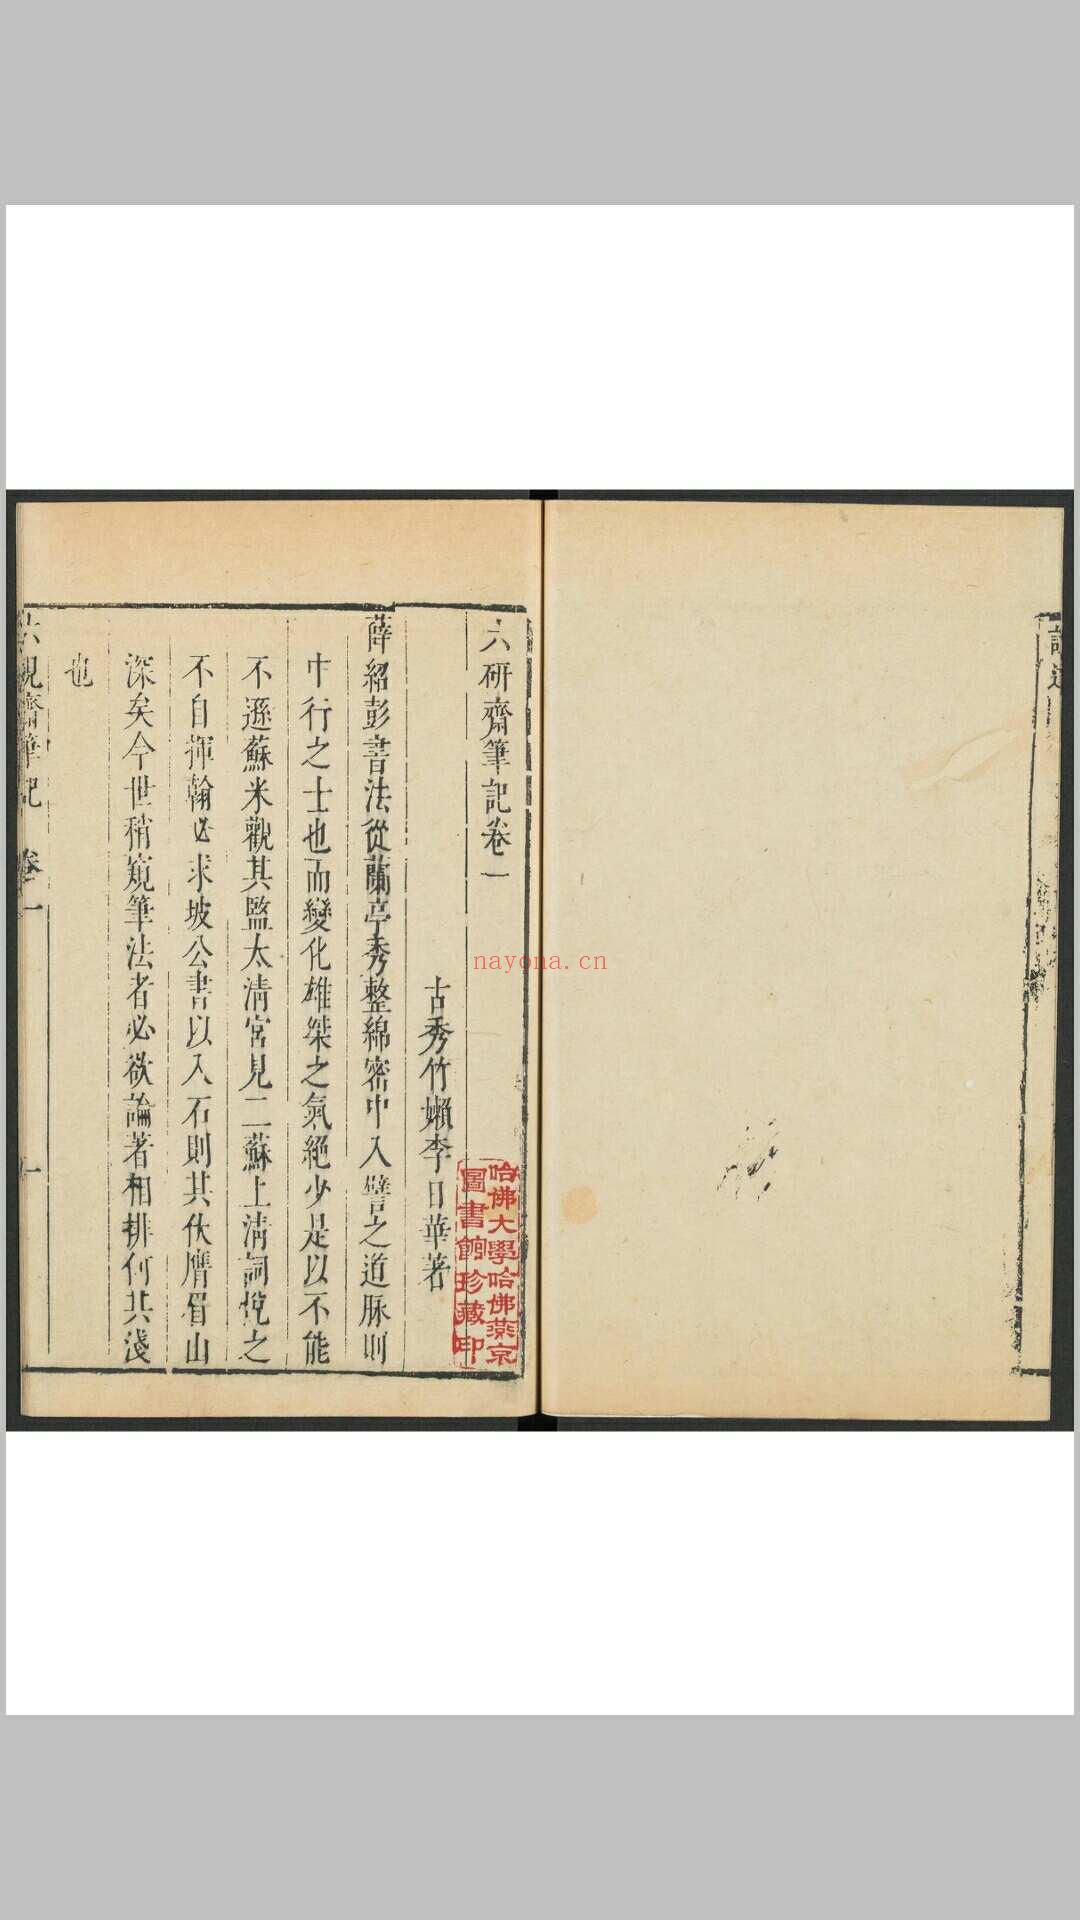 六研齋筆記卷一
古秀竹嬾李日華著
薛紹彭書法從蘭亭秀整綿密中入譬之道脉則
中行之士也而變化雄桀之氣絕少是以不能
不遜蘇米觀其監太清宮見二蘇上清詞悅之
不自揮翰必求坡公書以入石則其伏膺眉山
深矣今世稍窺筆法者必欲論著相排何其淺
也
六硯齋筆記 卷一 一
哈佛大學哈佛燕京
圖書館珍藏印
nayona.cn